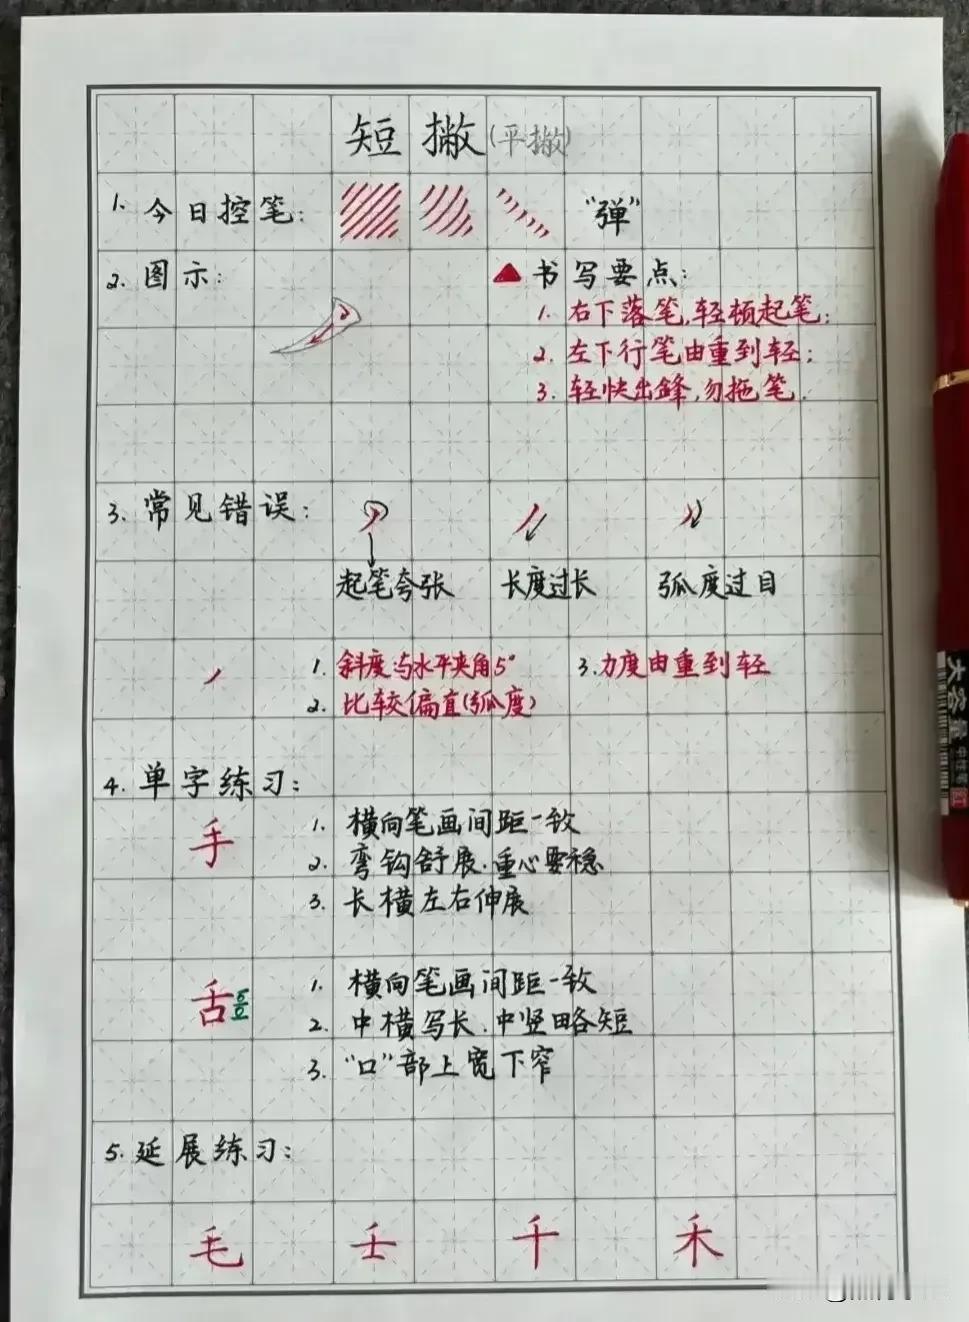 短撇(平撇)
1. 今日控笔: "弹"
2. 图示:
▲ 书写要点:
1. 右下落笔,轻顿起笔;
2. 左下行笔由重到轻;
3. 轻快出锋,勿拖笔.
3. 常见错误:
起笔夸张 长度过长 弧度过目
1. 斜度与水平夹角5°
2. 比较偏直(弧度)
3. 力度由重到轻
4. 单字练习:
手
1. 横向笔画间距一致
2. 弯钩舒展.重心要稳
3. 长横左右伸展
舌
1. 横向笔画间距一致
2. 中横写长.中竖略短
3. "口"部上宽下窄
5. 延展练习:
毛 壬 千 禾
大容量
中性笔
红